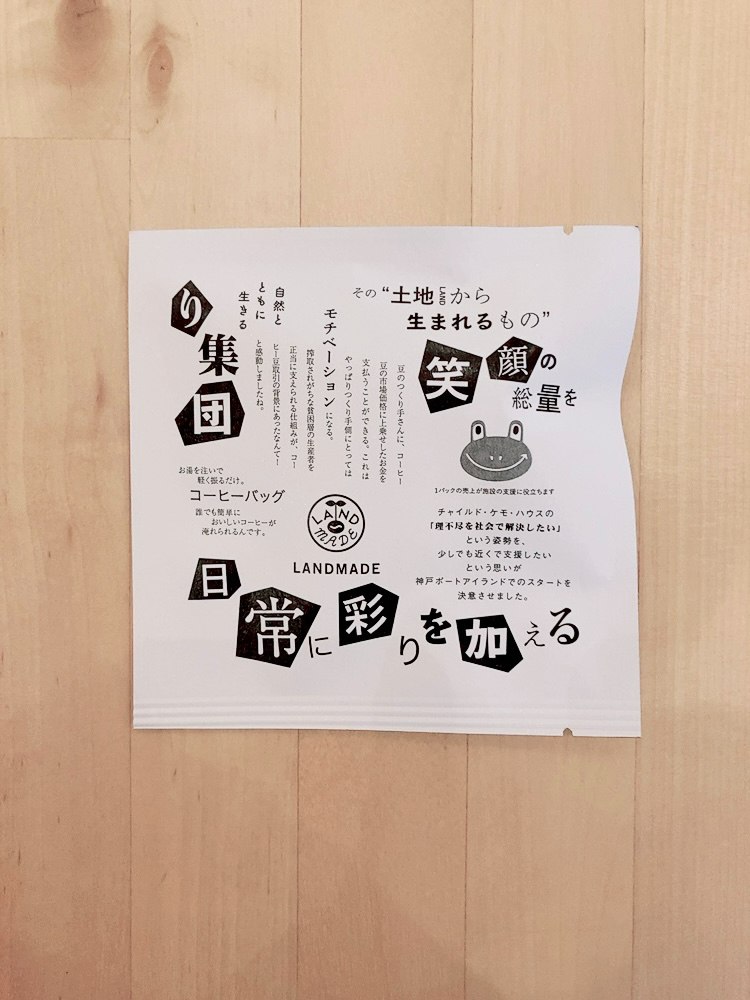 その“土地LANDから
生まれるもの”
笑顔の
総量を
1パックの売上が施設の支援に役立ちます
チャイルド・ケモ・ハウスの
「理不尽を社会で解決したい」
という姿勢を、
少しでも近くで支援したい
という思いが
神戸ポートアイランドでのスタートを
決意させました。
豆のつくり手さんに、コーヒー
豆の市場価格に上乗せしたお金を
支払うことができる。これは
やっぱりつくり手側にとっては
モチベーションになる。
搾取されがちな貧困層の生産者を
正当に支えられる仕組みが、コー
ヒー豆取引の背景にあったなんてー
と感動しましたね。
自然と
ともに
生きる
り
集
団
お湯を注いで
軽く振るだけ。
コーヒーバッグ
誰でも簡単に
おいしいコーヒーが
淹れられるんです。
LAND
MADE
LANDMADE
日常に彩りを加える